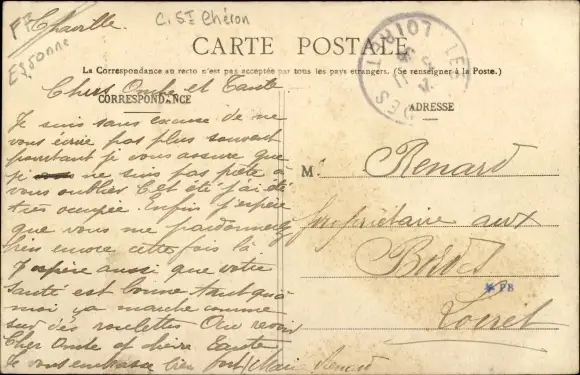 Chaville.
C. St Chéron
Essonne
CARTE POSTALE
La Correspondance au recto n'est pas acceptée par tous les pays étrangers. (Se renseigner à la Poste.)
CORRESPONDANCE
ADRESSE
Chers Oncle et Tante
Je suis sans excuse de ne
vous écrire pas plus souvent
pourtant je vous assure que
je ne suis pas prête à
vous oublier Cet été j'ai été
très occupée. Enfin j'espère
que vous me pardonnerez
bien encore cette fois là
J'espère aussi que votre
santé est bonne tant qu'à
moi ça marche comme
sur des roulettes Au revoir
Cher Oncle et chère Tante
Je vous embrasse bien fort Marie Renard
M. Renard
propriétaire aux
Loiret
PB
LOIRET